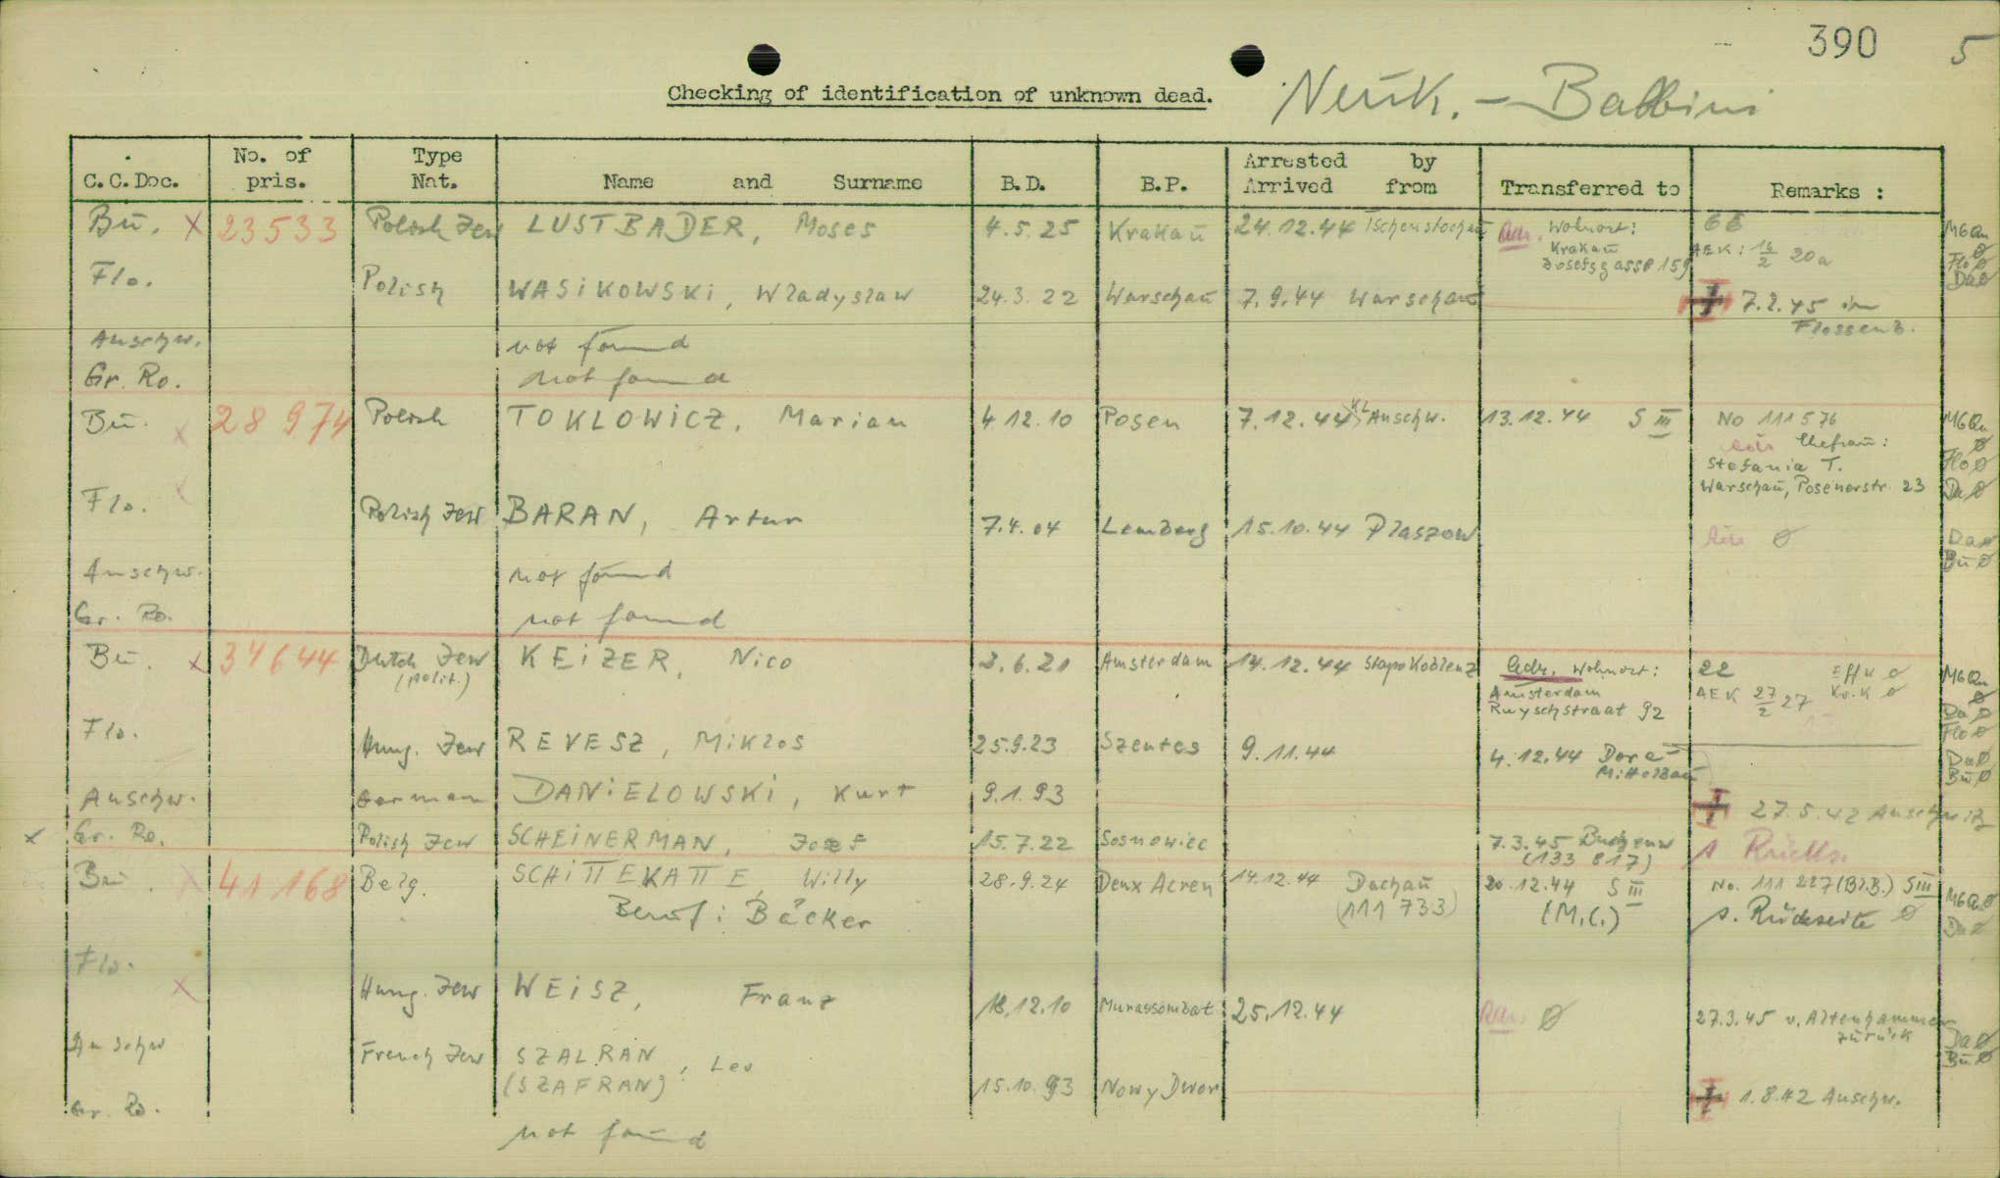 390 5
Checking of identification of unknown dead. Neuk. - Balbini
C.C.Doc. No. of pris. Type Nat. Name and Surname B.D. B.P. Arrested by Arrived from Transferred to Remarks :
Bu. x 23533 Polish Jew LUSTBADER, Moses 4.5.25 Krakau 24.12.44 Tschenstochau Adr. Wohnort: 66 M6Qu ø
Krakau AEK: 16/2 20a Flo ø
Josefsgasse 159 Da ø
Flo. Polish WASIKOWSKI, Wladyslaw 24.3.22 Warschau 7.9.44 Warschau 7.2.45 in
Flossenb.
Auschw. not found
Gr. Ro. not found
Bu. x 28974 Polish TOKLOWICZ, Marian 4.12.10 Posen 7.12.44 KL Auschw. 13.12.44 S III No 111576 M6Qu ø
Ehefrau: Flo ø
Stefania T.
Warschau, Posenerstr. 23 Da ø
Flo. x Polish Jew BARAN, Artur 7.4.04 Lemberg 15.10.44 Plaszow ø Da ø
Bu ø
Auschw. not found
Gr. Ro. not found
Bu. x 34644 Dutch Jew KEIZER, Nico 3.6.21 Amsterdam 14.12.44 Stapo Koblenz Adr. Wohnort: 22 Eff K ø M6Qu ø
(polit.) Amsterdam AEK 27/2 27 Kr.K ø Da ø
Ruyschstraat 92 Flo ø
Flo. Hung. Jew REVESZ, Miklos 25.9.23 Szentes 9.11.44 4.12.44 Dora- Da ø
Mittelbau Bu ø
Auschw. German DANIELOWSKI, Kurt 9.1.93 27.5.42 Auschwitz
x Gr. Ro. Polish Jew SCHEINERMAN, Josef 15.7.22 Sosnowiec 7.3.45 Buchenw s Rücks.
(133 817)
Bu. x 41168 Belg. SCHITTEKATTE, Willy 28.9.24 Deux Acren 14.12.44 Dachau 20.12.44 S III No. 111 227 (Bl.B.) S III M6Qu ø
Beruf: Bäcker (111 733) (M.C.) s. Rückseite ø Da ø
Flo. x Hung. Jew WEISZ, Franz 18.12.10 Muraszombat 25.12.44 Adr. ø 27.3.45 v. Altenhammer
zurück Da ø
Bu ø
Auschw French Jew SZALRAN, Leo
(SZAFRAN) 15.10.93 Nowy Dwor 1.8.42 Auschw.
Gr. Ro. not found